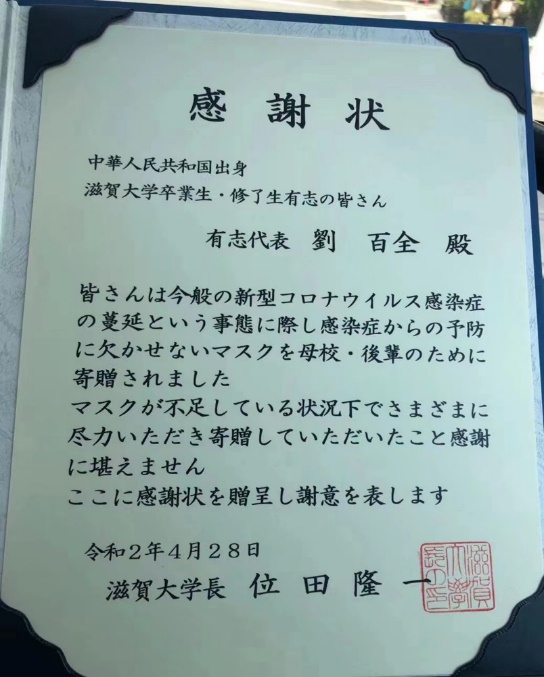 感謝状
中華人民共和国出身
滋賀大学卒業生・修了生有志の皆さん
有志代表 劉 百全 殿
皆さんは今般の新型コロナウイルス感染症
の蔓延という事態に際し感染症からの予防
に欠かせないマスクを母校・後輩のために
寄贈されました
マスクが不足している状況下でさまざまに
尽力いただき寄贈していただいたこと感謝
に堪えません
ここに感謝状を贈呈し謝意を表します
令和2年4月28日
滋賀大学長 位田隆一
滋賀
大学
長の印